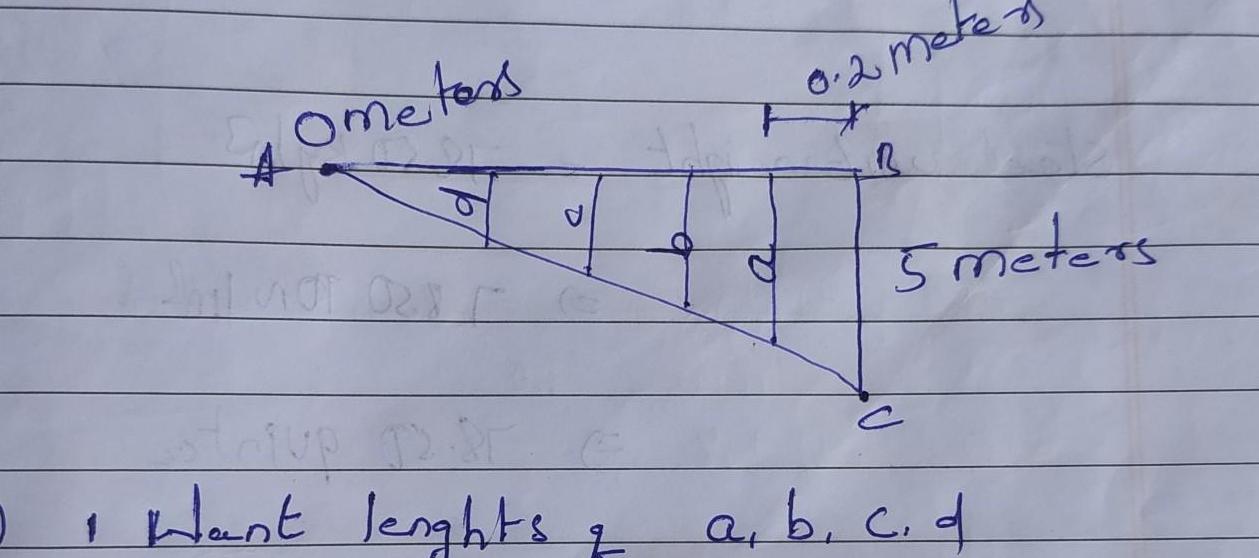 0.2 meters
0 meters
A
B
d
c
b
a
5 meters
C
) I Want lenghts
a, b, c, d